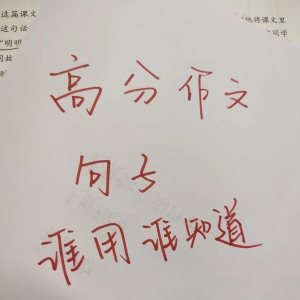 这篇课文
这句话
"明明
地将课文里
同学
高分作文
句子
谁用谁知道